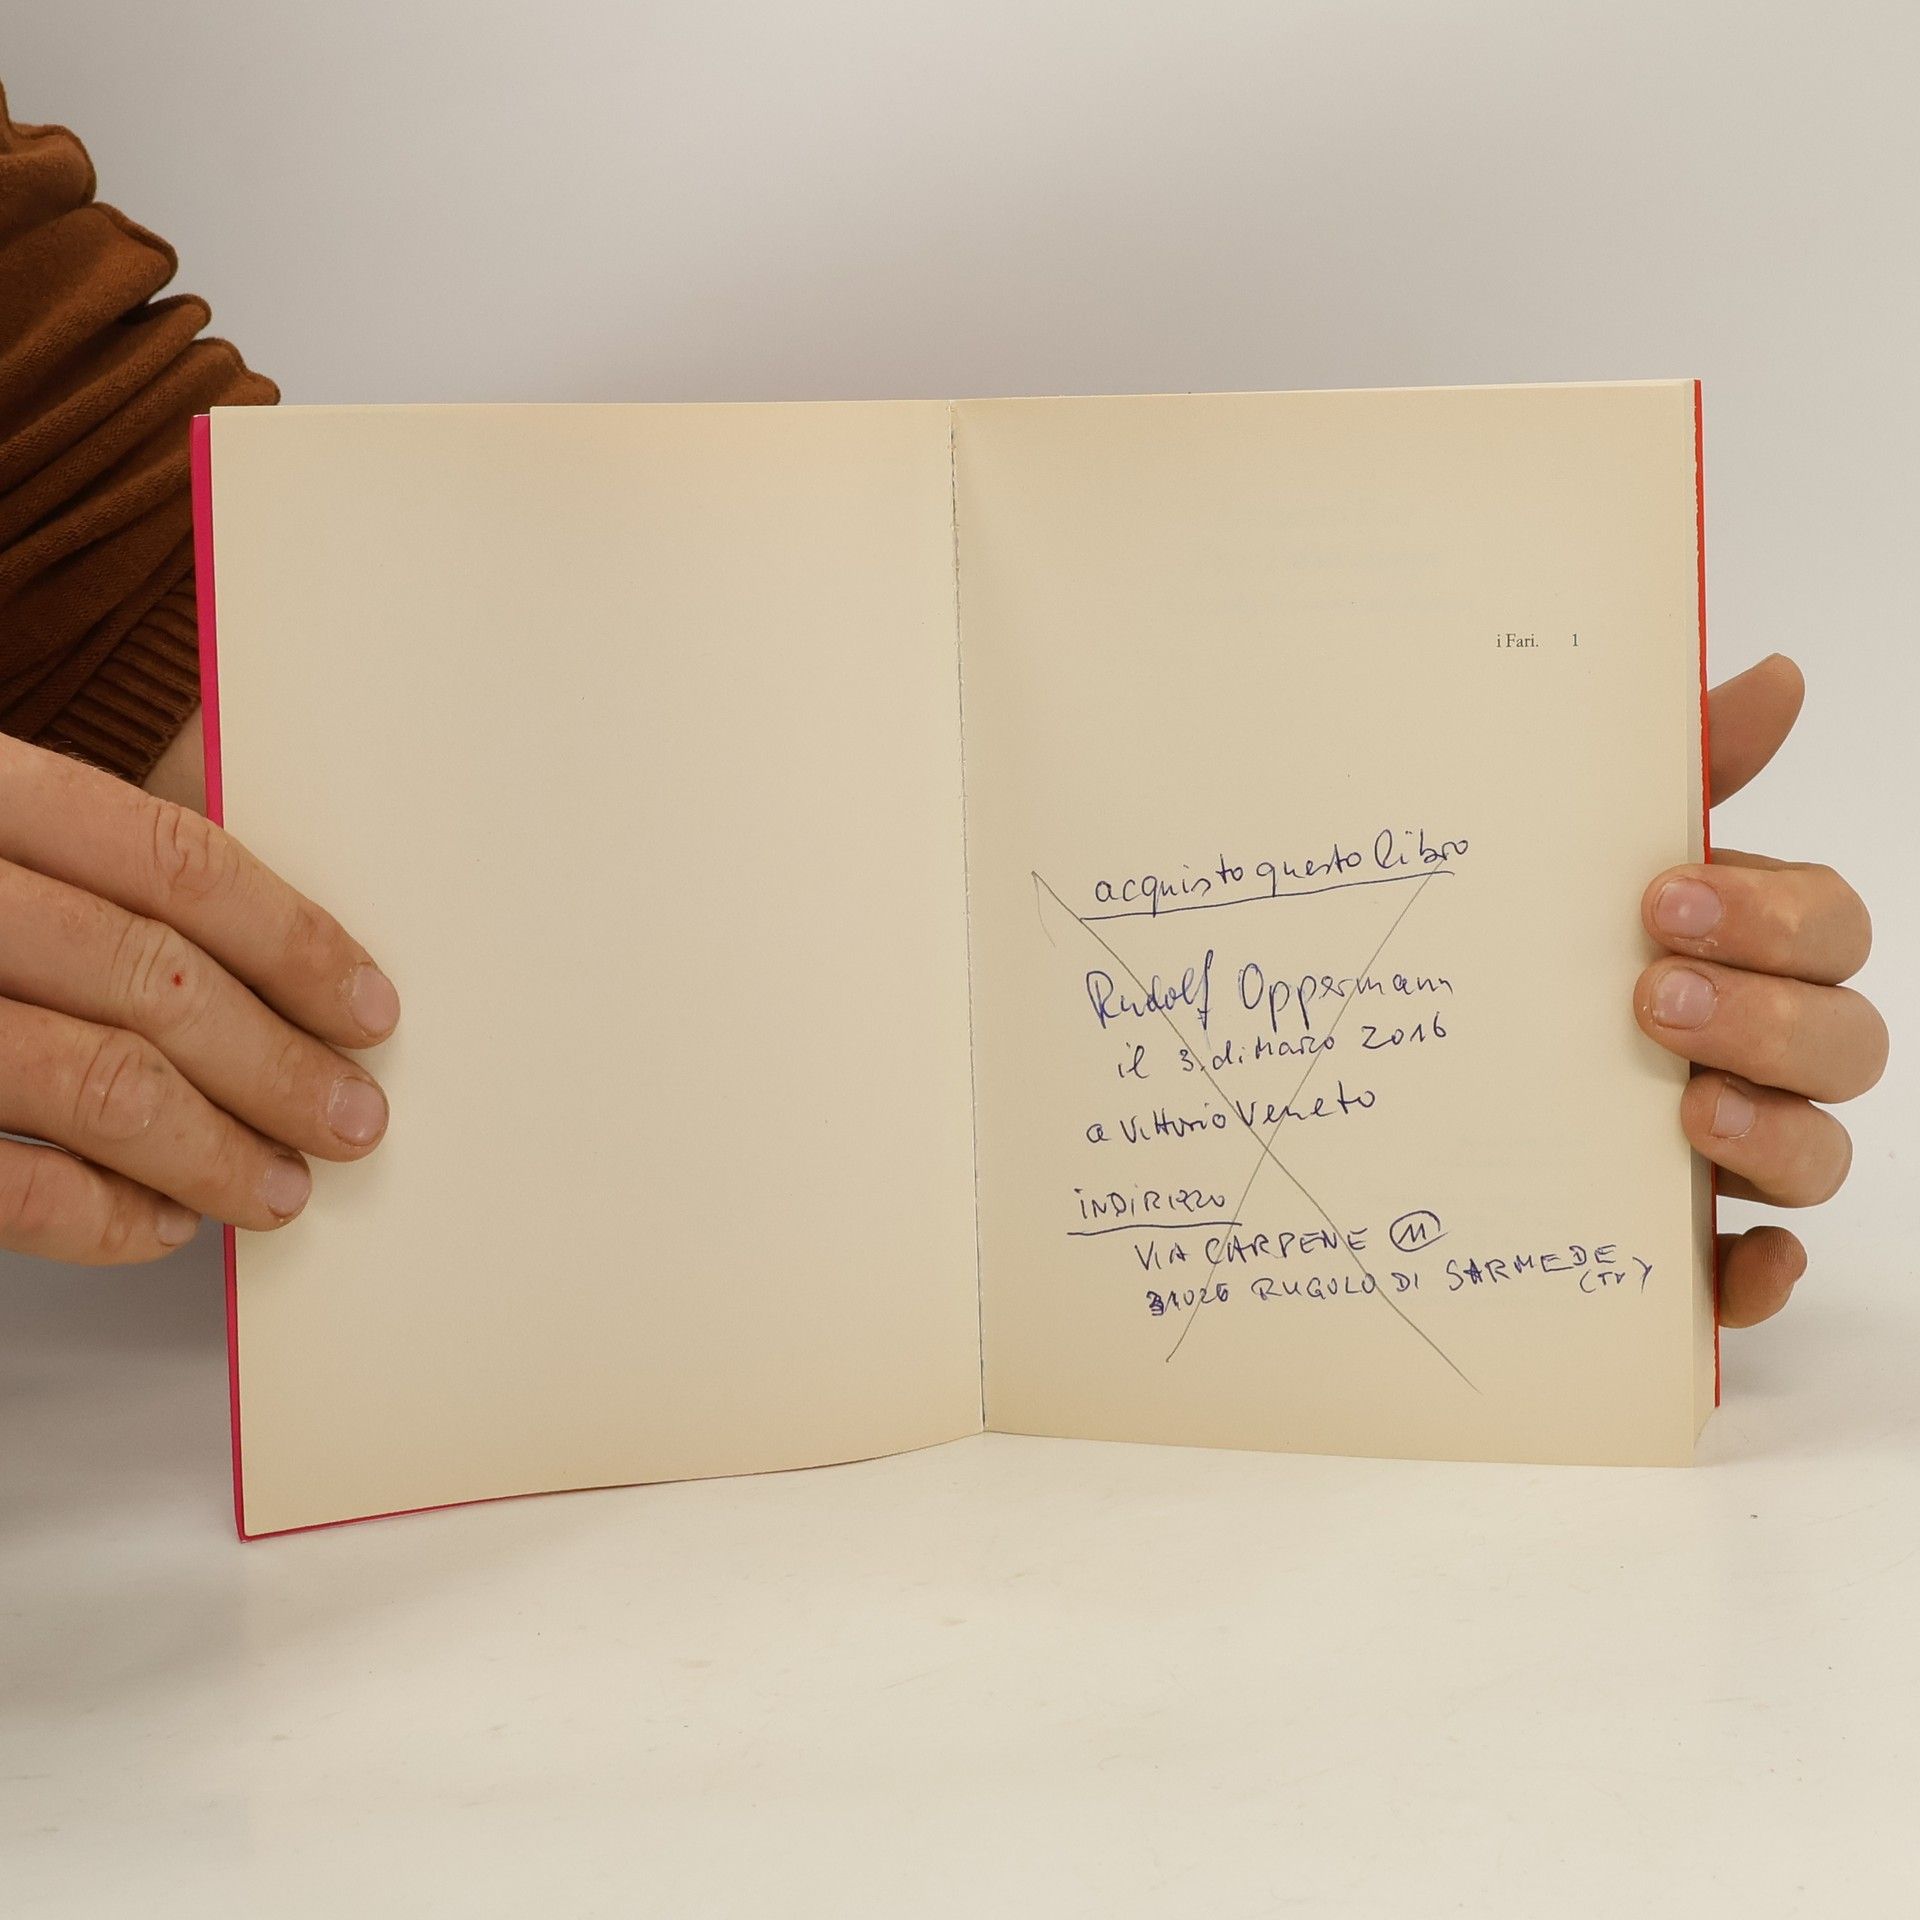 i Fari. 1
acquisto questo libro
Rudolf Oppermann
il 3. di Marzo 2016
a Vittorio Veneto
iNDiRizzo
VIA CARPENE 11
31026 RUGOLO DI SARMEDE
(TV)